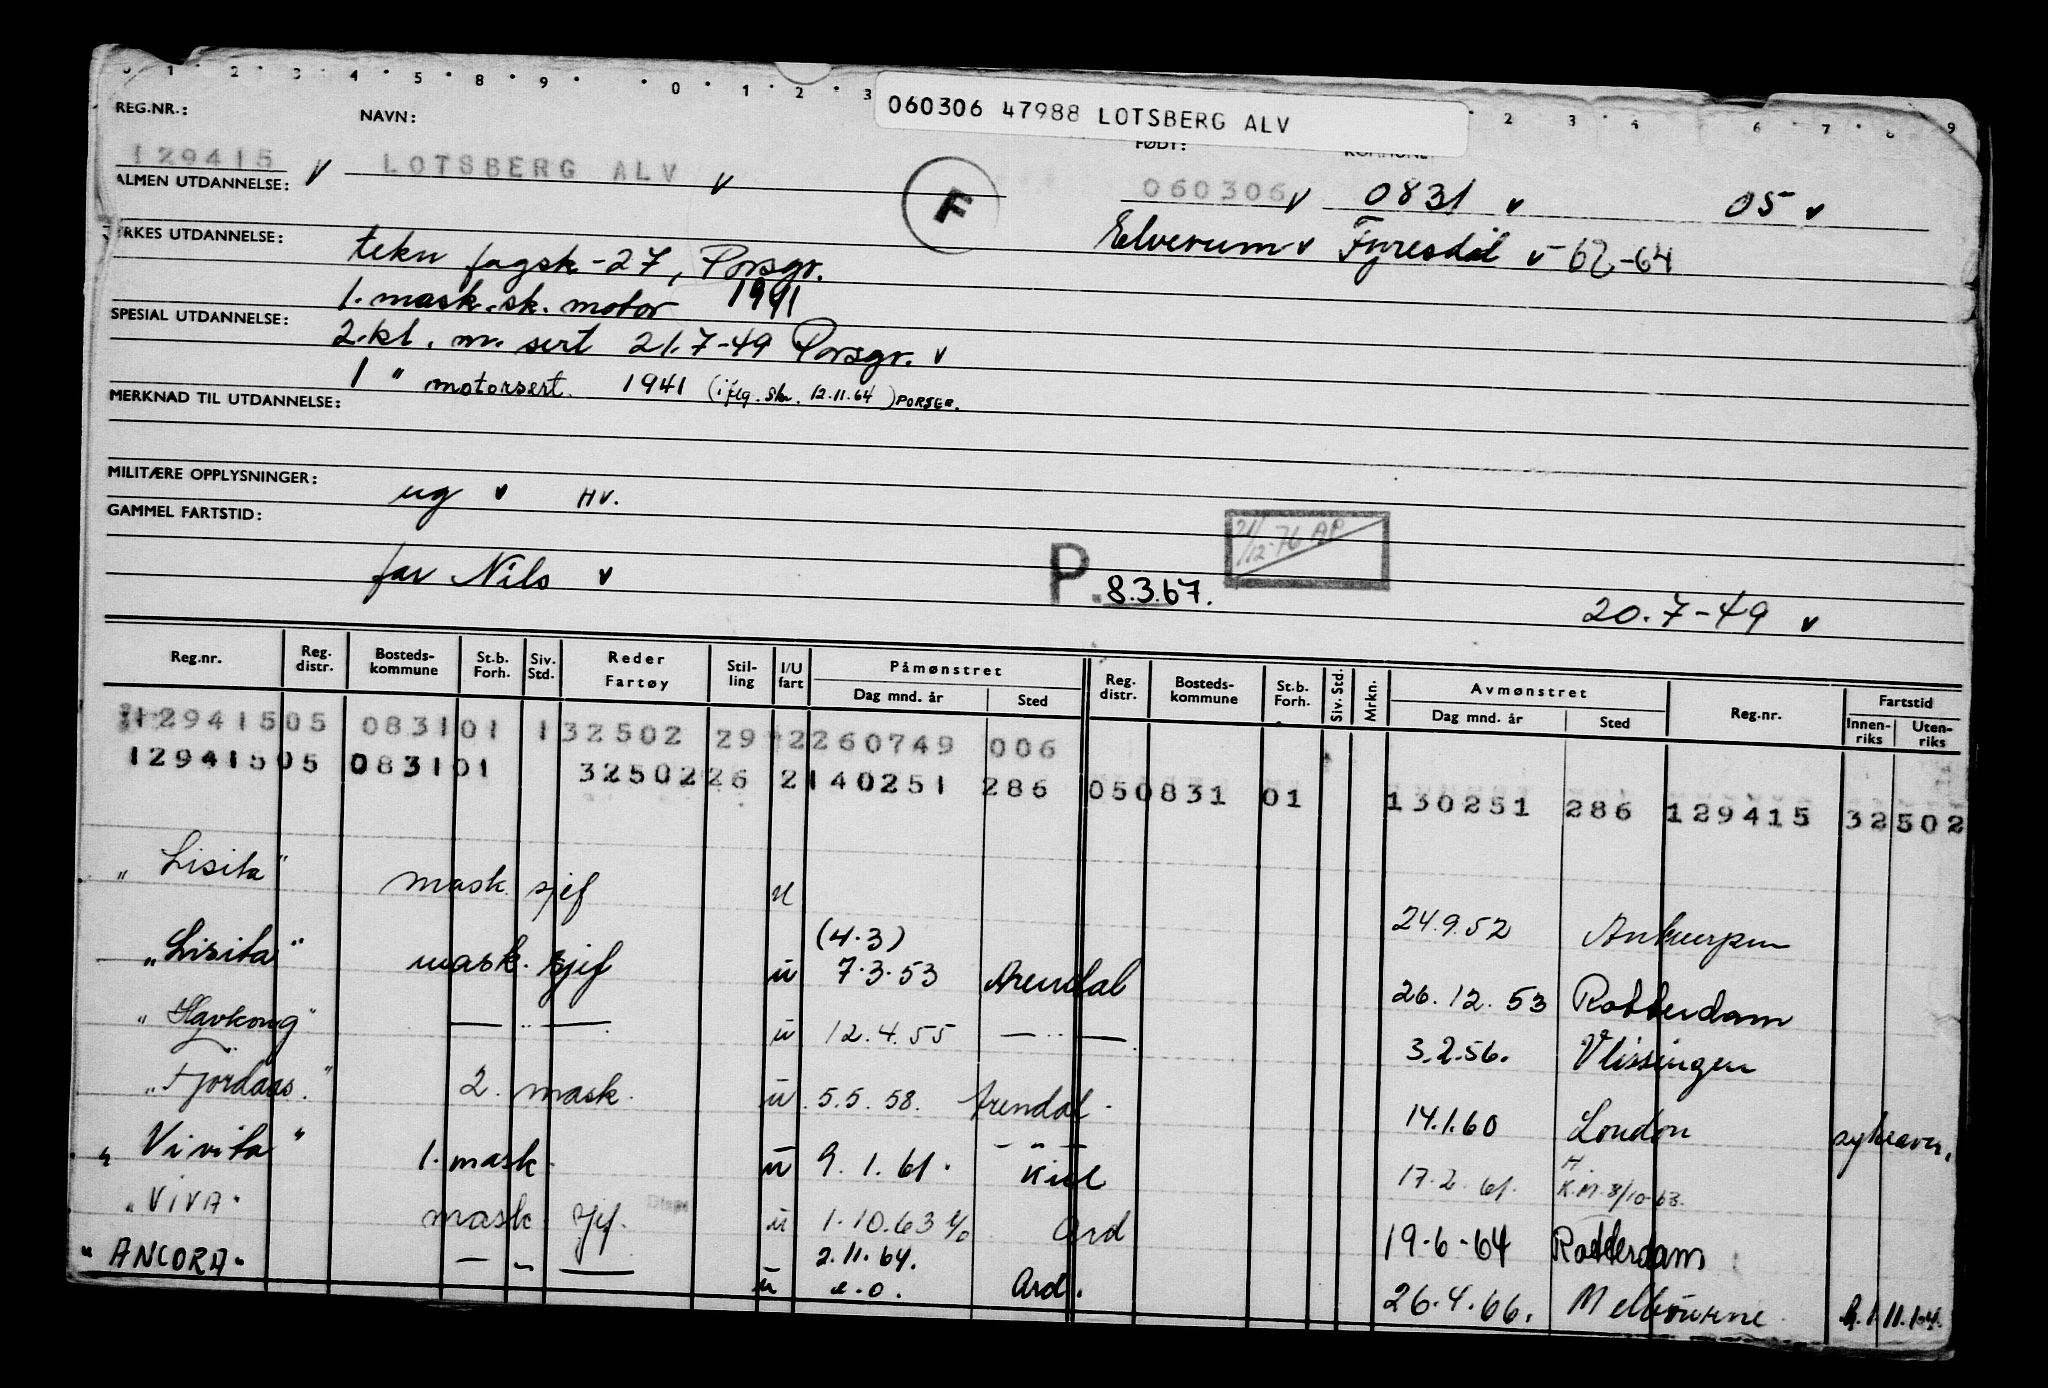 0 1 2 3 4 5 8 9 0 1 2 3 2 3 4 6 7 8 9
060306 47988 LOTSBERG ALV
REG.NR.: NAVN: FØDT: KOMMUNE
129415 v LOTSBERG ALV v F 060306 v 0831 v 05 v
ALMEN UTDANNELSE:
Elverum v Fyresdal v 62-64
YRKES UTDANNELSE: tekn fagsk-27, Porsgr.
1. mask.sk. motor 1941
SPESIAL UTDANNELSE: 2.kl. m. sert 21.7-49 Porsgr. v
1 " motorsert. 1941 (iflg. skr. 12.11.64) PORSGR.
MERKNAD TIL UTDANNELSE:
MILITÆRE OPPLYSNINGER: ug v HV.
GAMMEL FARTSTID:
21/12-76 AP
far Nils v P. 8.3.67. 20.7-49 v
Reg.nr. Reg. distr. Bosteds-kommune St.b. Forh. Siv. Std. Reder Fartøy Stil-ling I/U fart Påmønstret Dag mnd. år Sted Reg. distr. Bosteds-kommune St.b. Forh. Siv. Std. Mrkn. Avmønstret Dag mnd. år Sted Reg.nr. Fartstid Innen-riks Uten-riks
129415 05 0831 01 1 32502 29 2 260749 006
129415 05 0831 01 32502 26 2 140251 286 05 0831 01 130251 286 129415 32502
"Lisita" mask. sjef u 24.9.52 Antwerpen
"Lisita" mask. sjef u (4.3) 7.3.53 Arendal 26.12.53 Rotterdam
"Havkong" — " — u 12.4.55 — " — 3.2.56. Vlissingen
"Fjordaas." 2. mask. u 5.5.58. Arendal. 14.1.60 London sykeavm.
"Vivita" 1. mask. u 9.1.61. — " — Kiel 17.2.61. H. K.M. 8/10-63.
"VIVA" mask. sjef. u 1.10.63 Ard 19-6-64 Rotterdam
"ANCORA" — " — u 2.11.64. e.o. Ard. 26.4.66. Melbourne